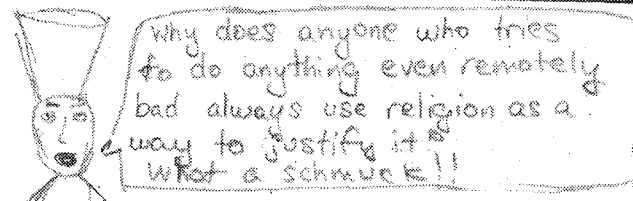 Why does anyone who tries
to do anything even remotely
bad always use religion as a
way to justify it?
What a schmuck!!